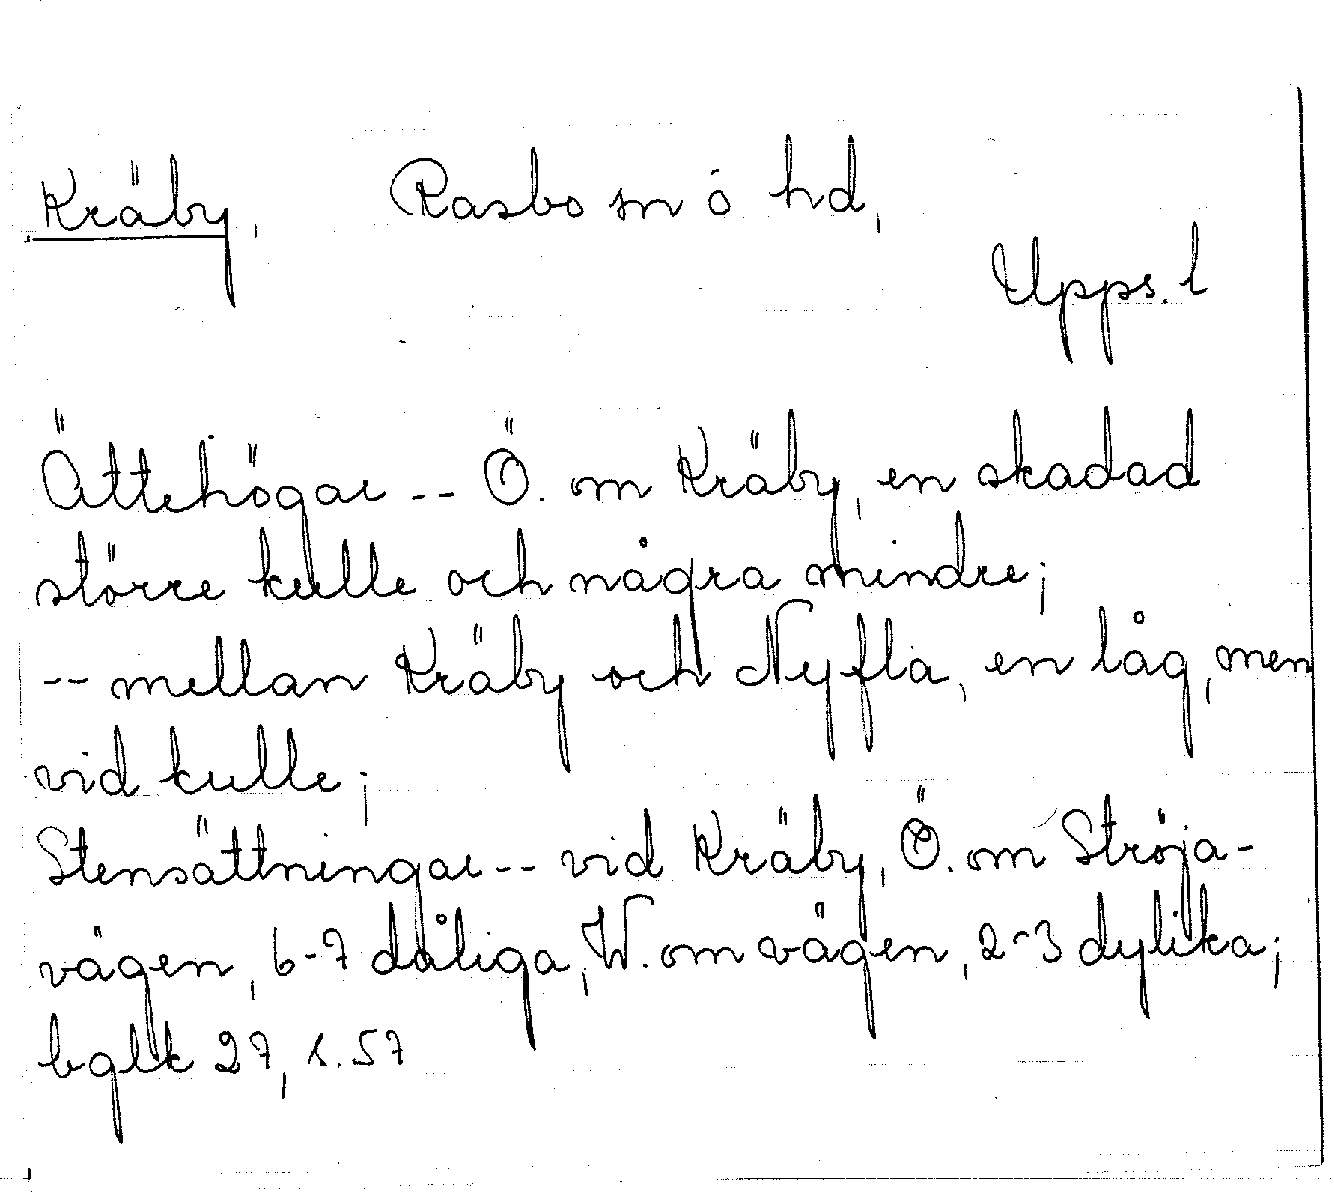 Kräby, Rasbo sn ö hd,
Upps. l
Ättehögar -- Ö. om Kräby, en skadad
större kulle och några mindre;
-- mellan Kräby och Nyfla, en låg, men
vid kulle;
Stensättningar -- vid Kräby, Ö. om Ströja-
vägen, 6-7 dåliga, W. om vägen, 2-3 dylika;
bglk 27, s. 57